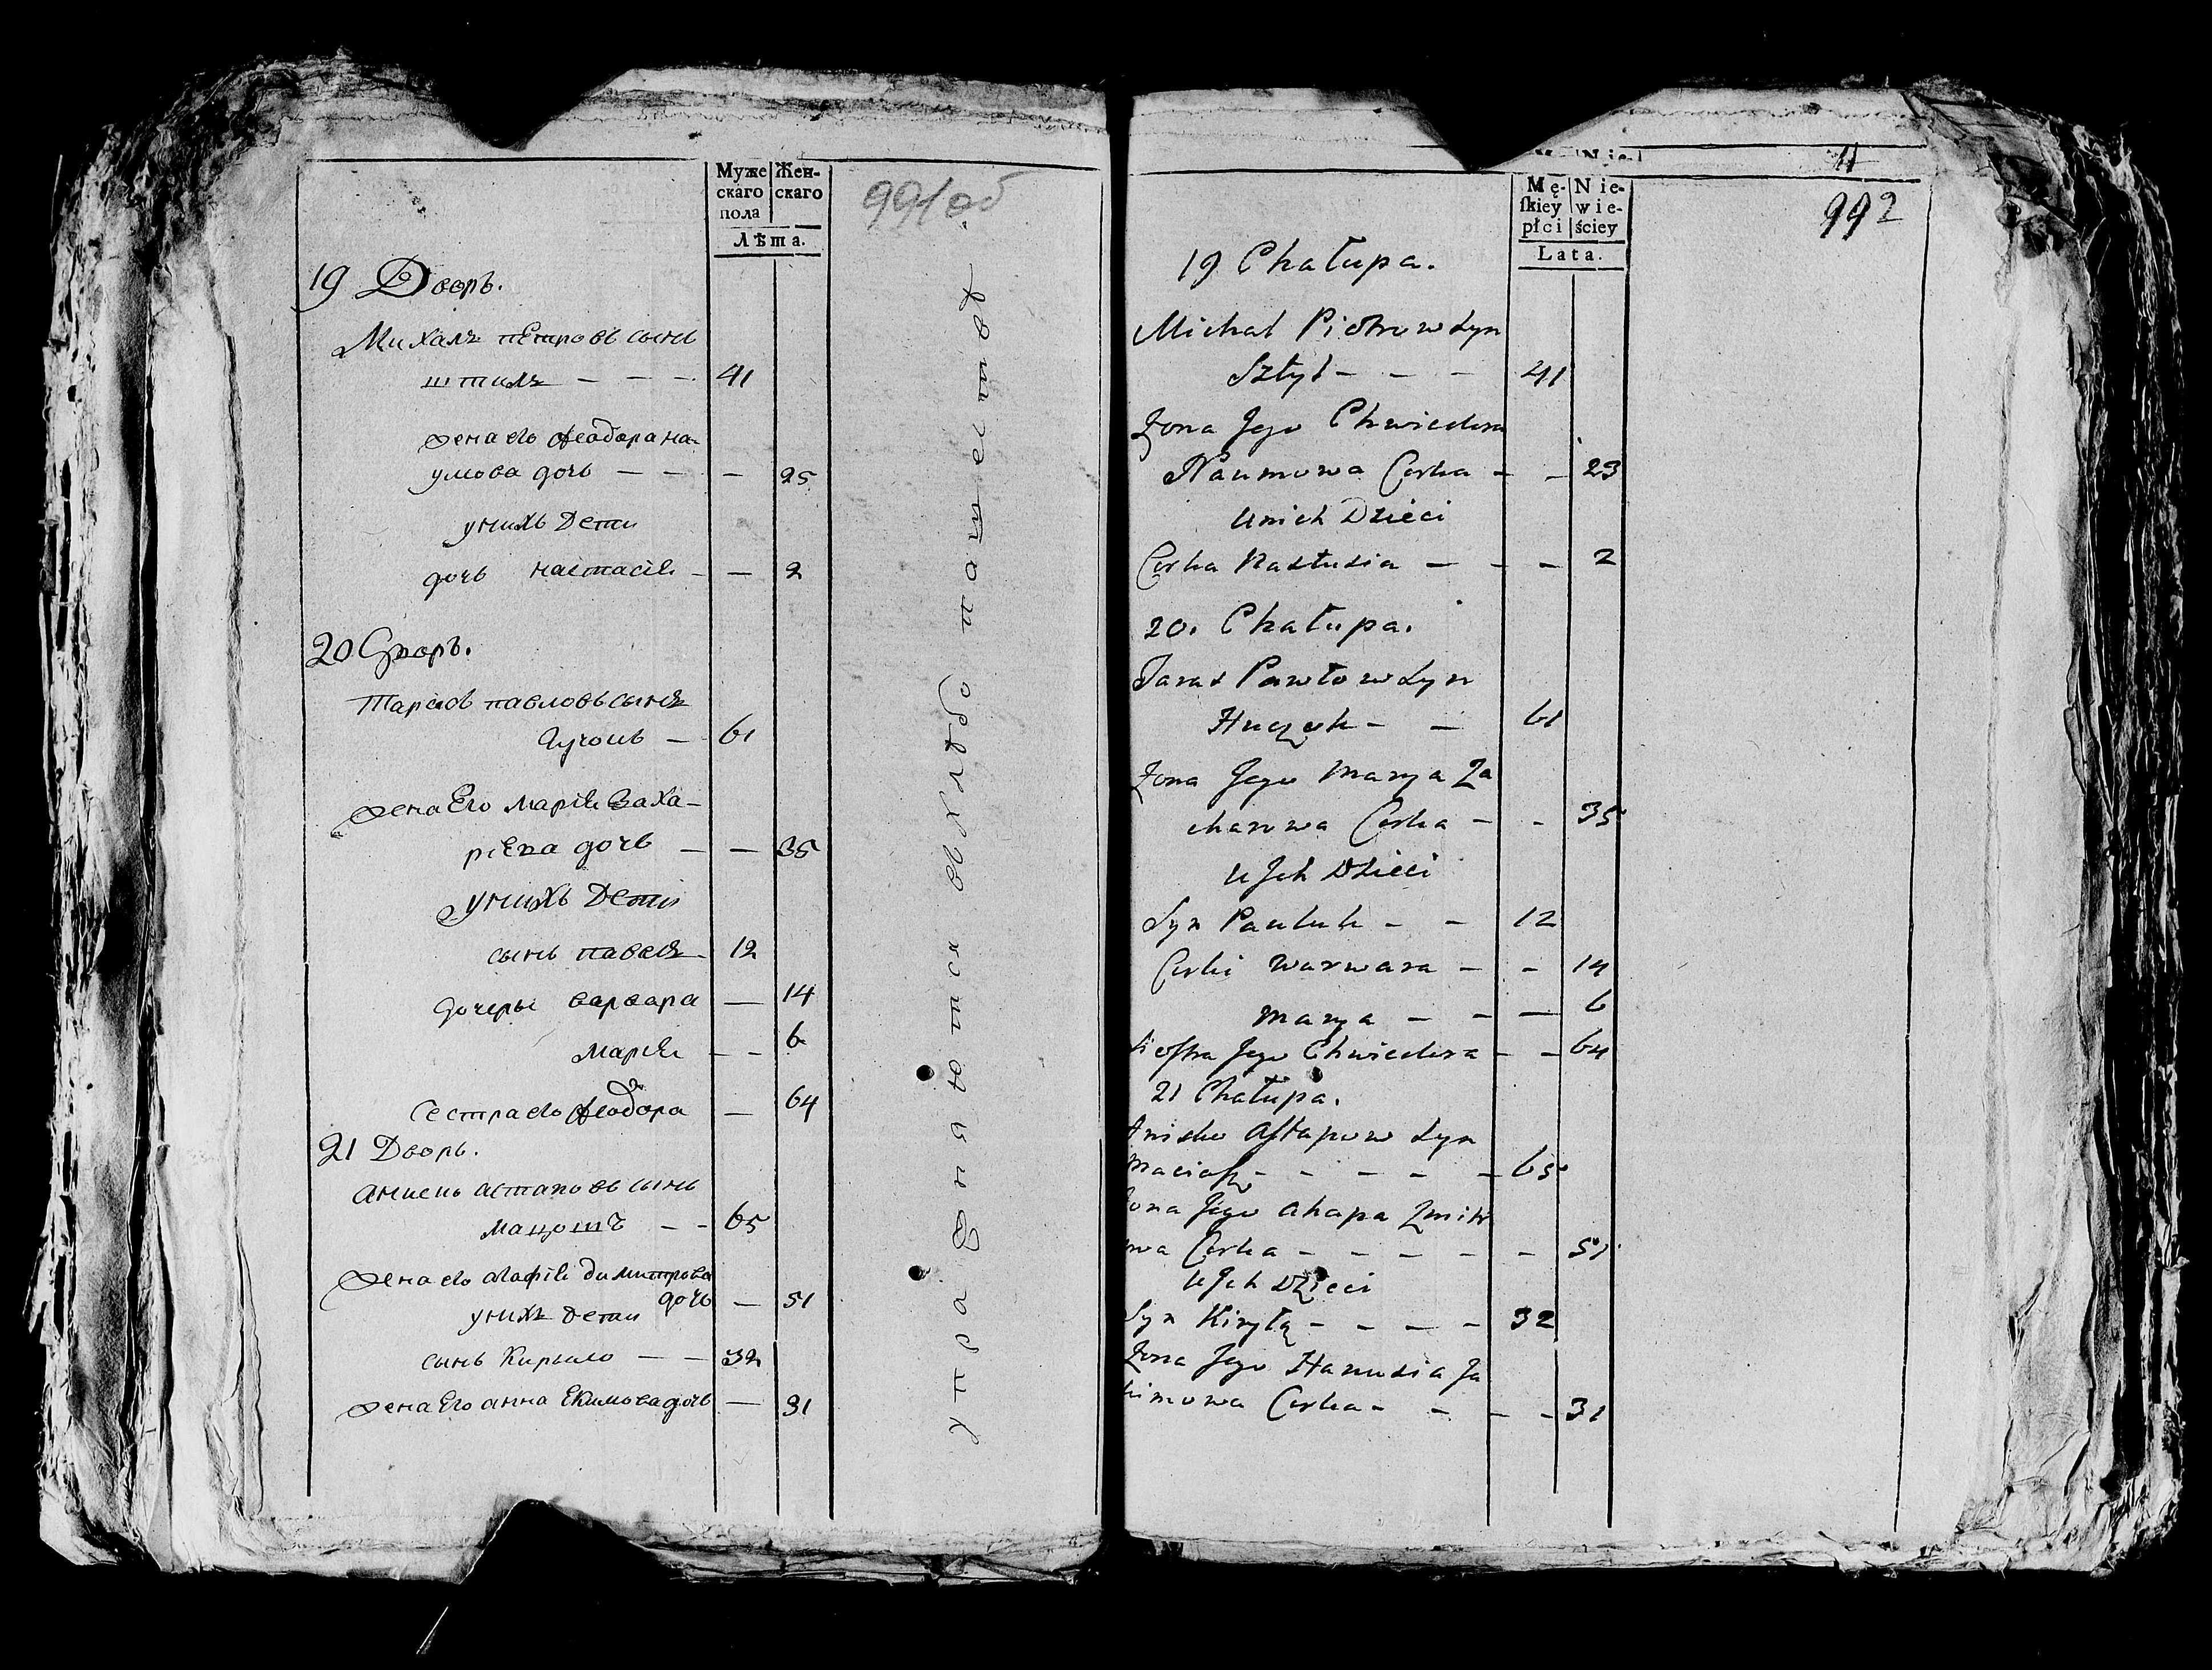 Муже
скаго
пола
Жен-
скаго
Лѣта.
991об
19 Дворъ.
Михалъ петровъ сынъ
штиль - - - 41
жена его феодора на-
умова дочь - - - 25
у нихъ дети
дочь настасія - - 2
20 Дворъ.
Тарасъ павловъ сынъ
гучокъ - 61
жена Его марія Заха-
ріева дочь - - 35
у нихъ дети
сынъ павелъ - 12
дочеры варвара - 14
марія - - 6
сестра его феодора - 64
21 Дворъ.
анисько астаповъ сынъ
мацошъ - - 65
жена его агафія димитрова
дочь - 51
у нихъ дети
сынъ Кирыло - - 32
жена Его анна Екимова дочь - 31
упражняются вхлѣбопашествѣ
11
992
Mę-
ſkiey
płci
Nie-
wie-
ściey
Lata.
19 Chałupa.
Michał Piotrow Syn
Sztyl - - - 41
Żona Jego Chwiedora
Naumowa Corka - - 23
U nich Dzieci
Corka Nastusia - - - 2
20. Chałupa.
Taras Pawłow Syn
Huczok - - 61
Żona Jego Marya Za
charowa Corka - - 35
U Jch Dzieci
Syn Pauluk - - 12
Corki Warwara - - 14
Marya - - - 6
Sioſtra Jego Chwiedora - - 64
21 Chałupa.
Anisko Aſtapow Syn
Macioſz - - - - - 65
Żona Jego Ahapa Zmitr
owa Corka - - - - - 51
U Jch Dzieci
Syn Kiryła - - - - 32
Żona Jego Hanusia Ja
kimowa Corka - - - - 31